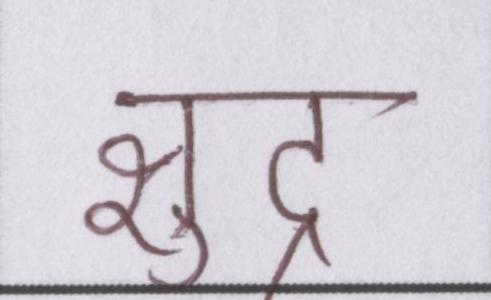 क्षुद्र